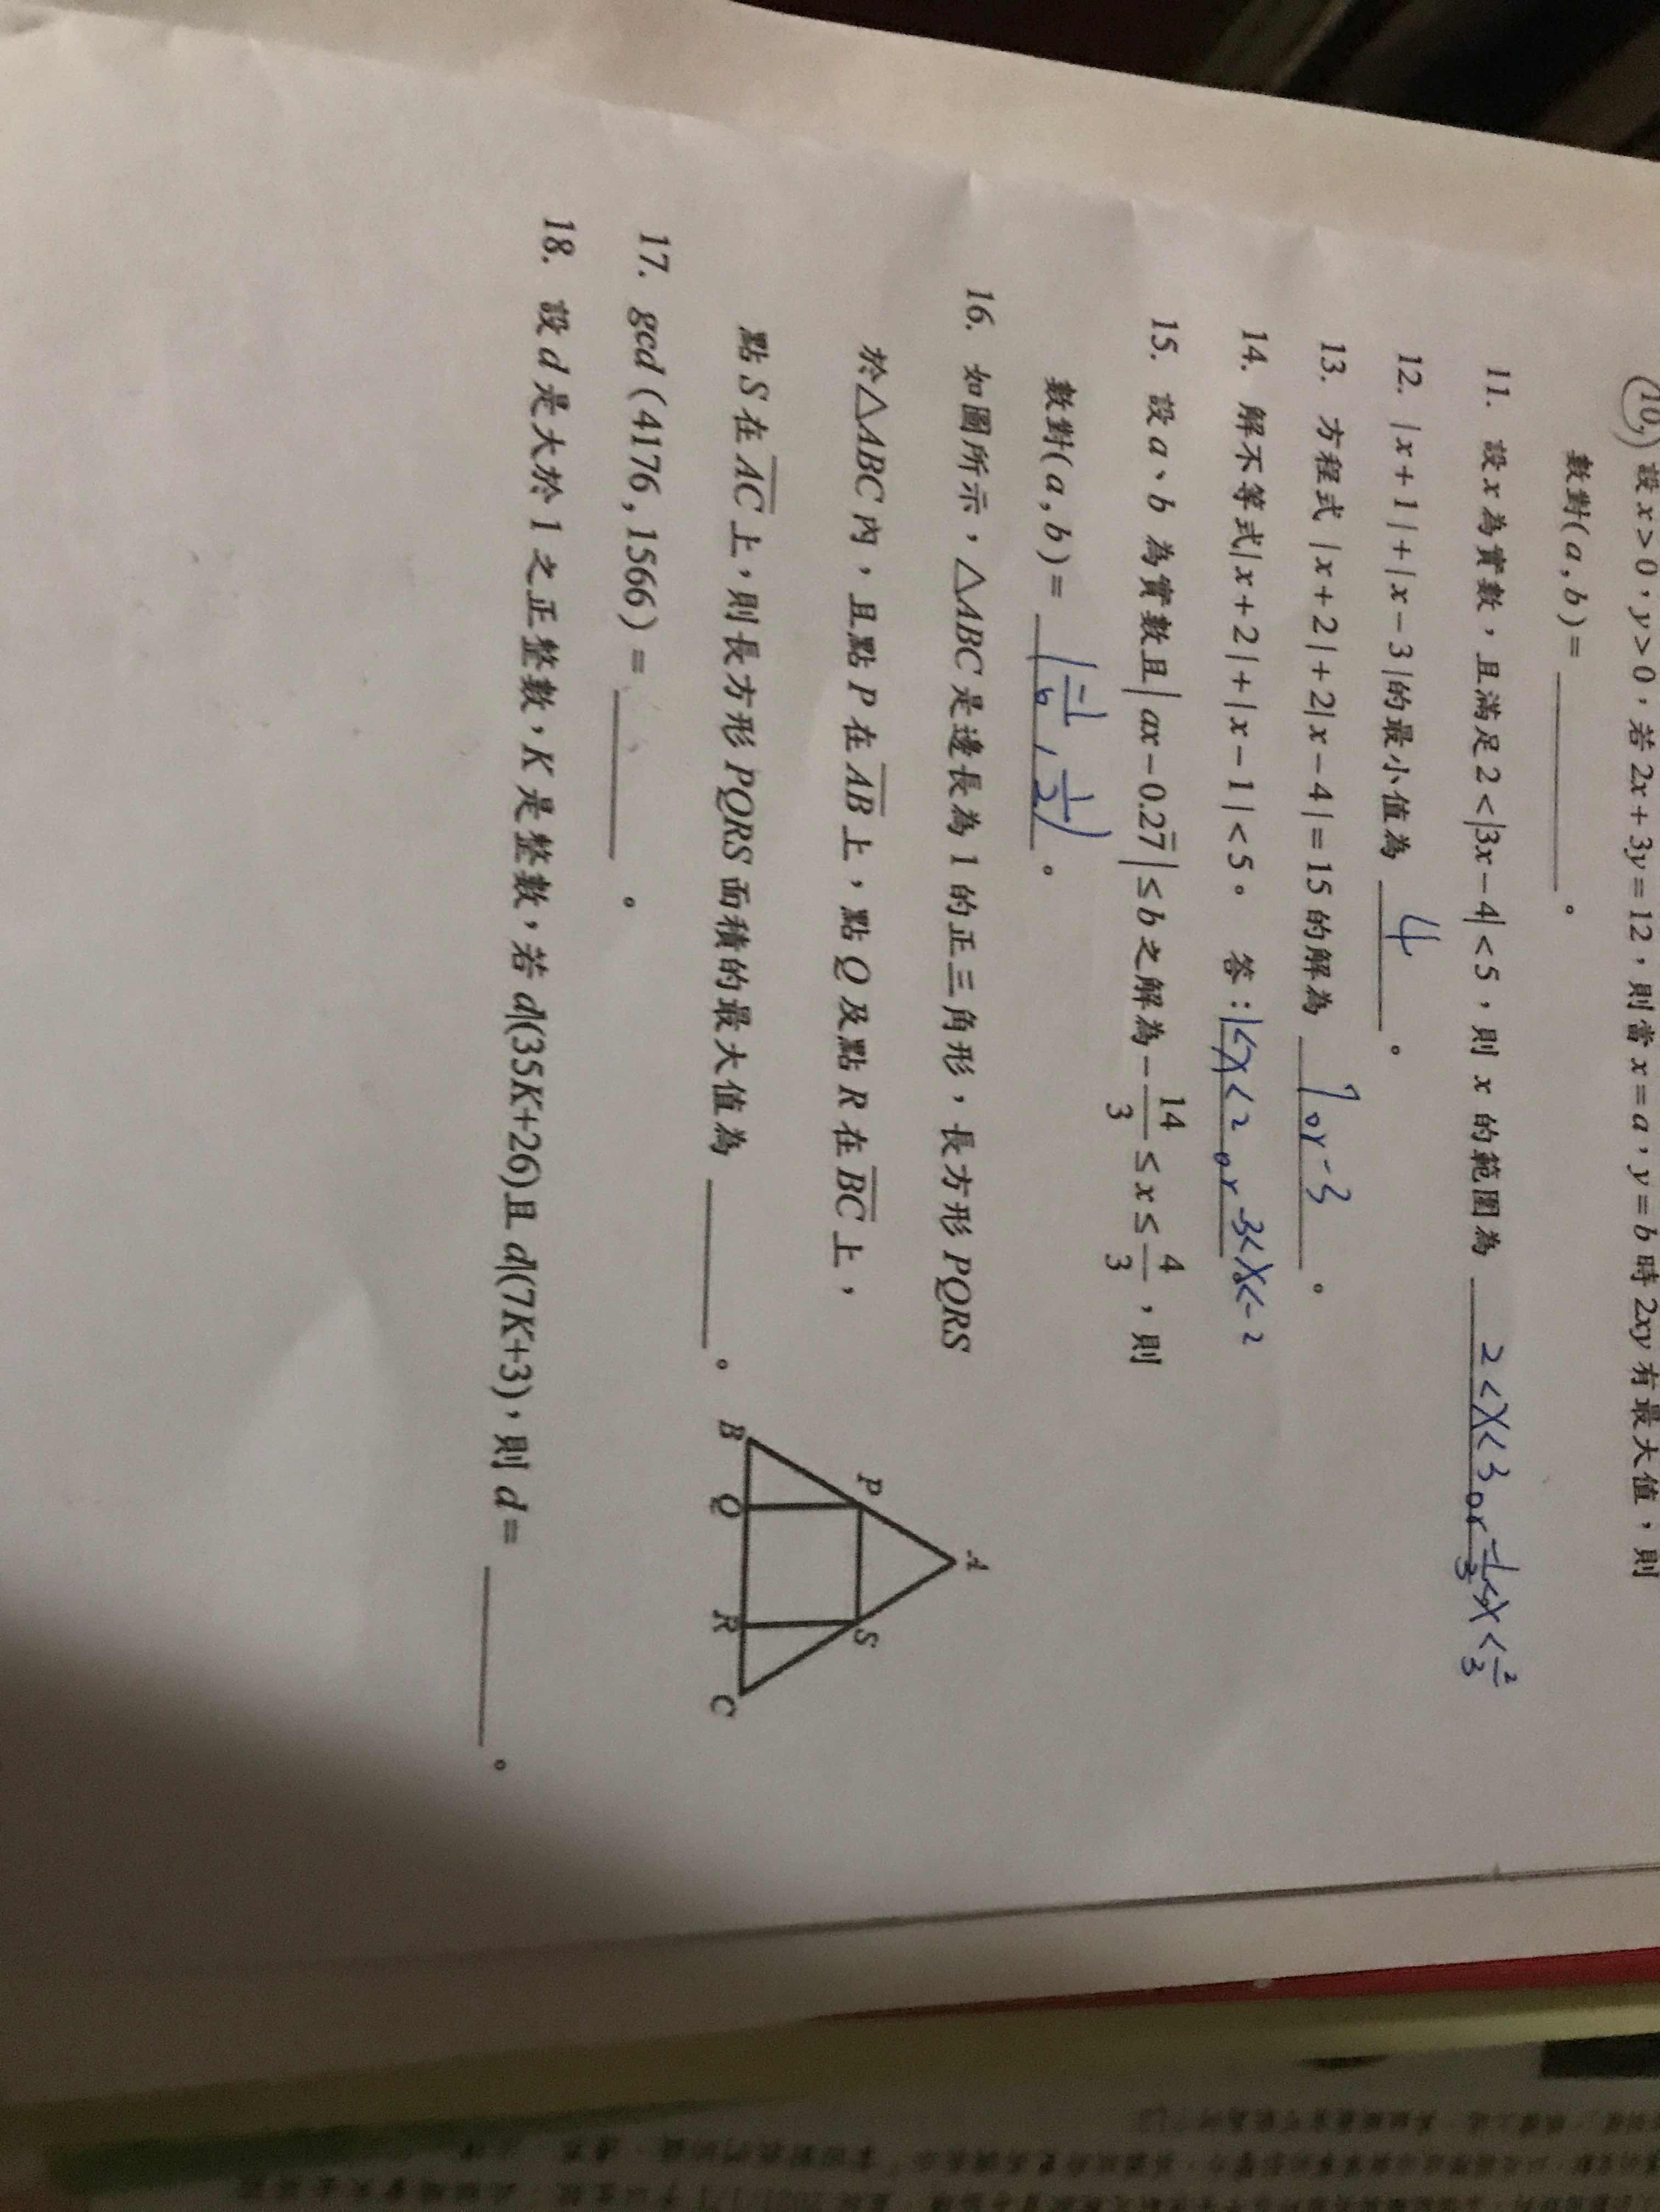 10. 設 x>0，y>0，若 2x+3y=12，則當 x=a，y=b 時 2xy 有最大值，則
數對(a,b)=________。
11. 設 x 為實數，且滿足 2<|3x-4|<5，則 x 的範圍為 2<x<3 or -1/3<x<2/3
12. |x+1|+|x-3|的最小值為 4 。
13. 方程式 |x+2|+2|x-4|=15 的解為 7 or -3 。
14. 解不等式|x+2|+|x-1|<5。 答：1<x<2 or -3<x<-2
15. 設 a、b 為實數且|ax-0.27̅|≤b 之解為 -14/3 ≤ x ≤ 4/3，則
數對(a,b)= (-1/6, 1/2) 。
16. 如圖所示，△ABC 是邊長為 1 的正三角形，長方形 PQRS
於△ABC 內，且點 P 在 A̅B̅ 上，點 Q 及點 R 在 B̅C̅ 上，
點 S 在 A̅C̅ 上，則長方形 PQRS 面積的最大值為________。
A
P
S
B
Q
R
C
17. gcd (4176,1566)=________。
18. 設 d 是大於 1 之正整數，K 是整數，若 d|(35K+26)且 d|(7K+3)，則 d=________。